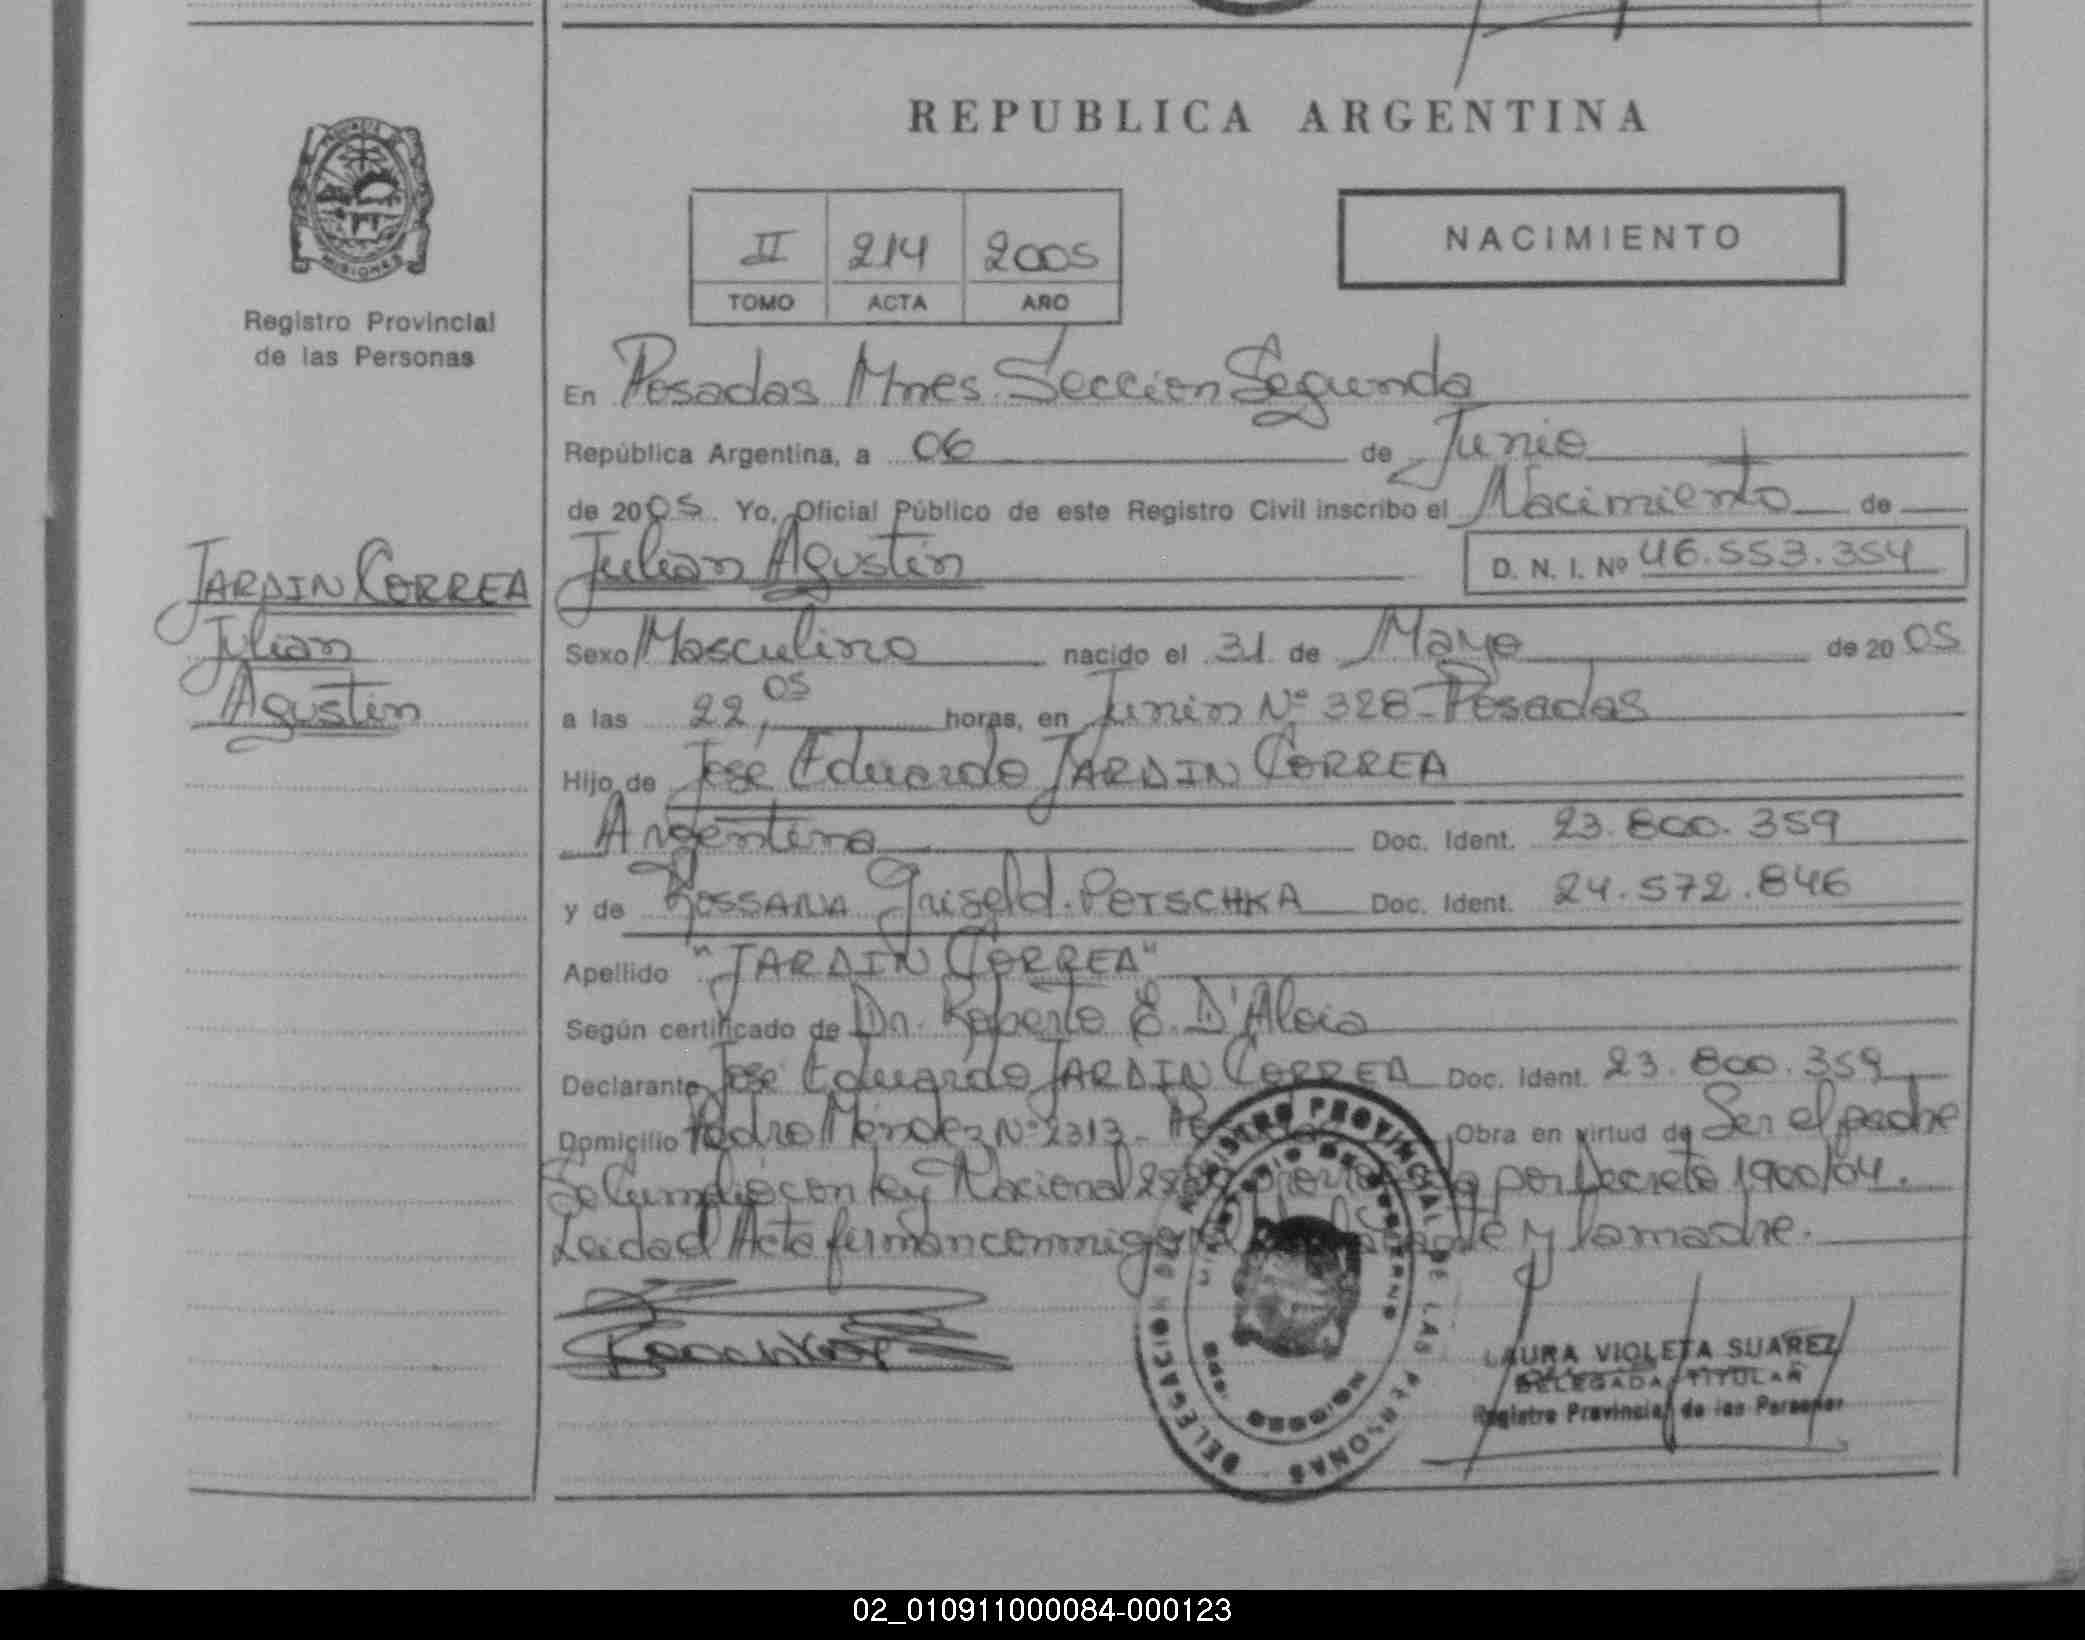 REPUBLICA ARGENTINA
II 214 2005
TOMO ACTA AÑO
NACIMIENTO
MISIONES
Registro Provincial
de las Personas
JARDIN CORREA
Julian
Agustin
En Posadas Mnes. Sección Segunda
República Argentina, a 06 de Junio
de 2005 Yo, Oficial Público de este Registro Civil inscribo el Nacimiento de
Julian Agustin D. N. I. Nº 46.553.354
Sexo Masculino nacido el 31 de Mayo de 2005
a las 22,05 horas, en Junin Nº 328 - Posadas
Hijo de José Eduardo JARDIN CORREA
Argentina Doc. Ident. 23.800.359
y de ROSSANA Griseld. PETSCHKA Doc. Ident. 24.572.846
Apellido "JARDIN CORREA"
Según certificado de Dr. Roberto E. D'Aloia
Declarante José Eduardo JARDIN CORREA Doc. Ident. 23.800.359
Domicilio Pedro Méndez Nº 2313 - Obra en virtud de Ser el padre
Se Cumplió con Ley Nacional por Decreto 1900/04.
Leida el Acta firman conmigo y la madre.
REGISTRO PROVINCIAL DE LAS PERSONAS
MISIONES
LAURA VIOLETA SUAREZ
DELEGADA TITULAR
Registro Provincial de las Personas
02_010911000084-000123